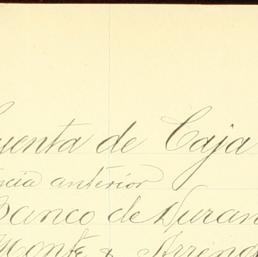 Cuenta de Caja
ncia anterior
Banco de Duran
Monte y